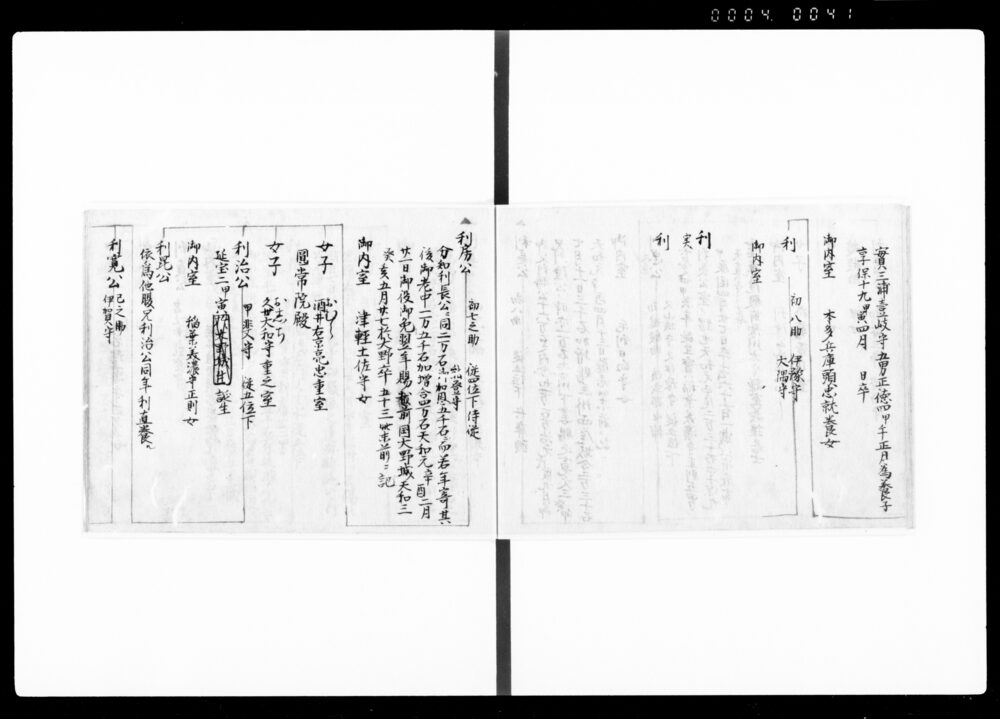 0004. 0041
實三浦壹岐守五男正德四甲午正月為養子
享保十九甲寅四月 日卒
御内室 本多兵庫頭忠就養女
利 初八助 伊豫守
大隅守
御内室
利
実
利
利房公 初七之助 従四位下侍従
能登守
分知利長公
後御老中一万五千石加増合四万石天和元辛酉二月
廿一日御役御免翌年賜越前国大野城天和三
癸亥五月廿七於大野卒五十三
御内室 津軽土佐守女
女子
酒井右京亮忠重室
圓常院殿
女子
久世大和守重之室
利治公 甲斐守 従五位下
延宝二甲寅 誕生
御内室 稲葉美濃守正則女
利昆公
依為他腹兄利治公同年利直養
利寛公 巳之助
伊賀守